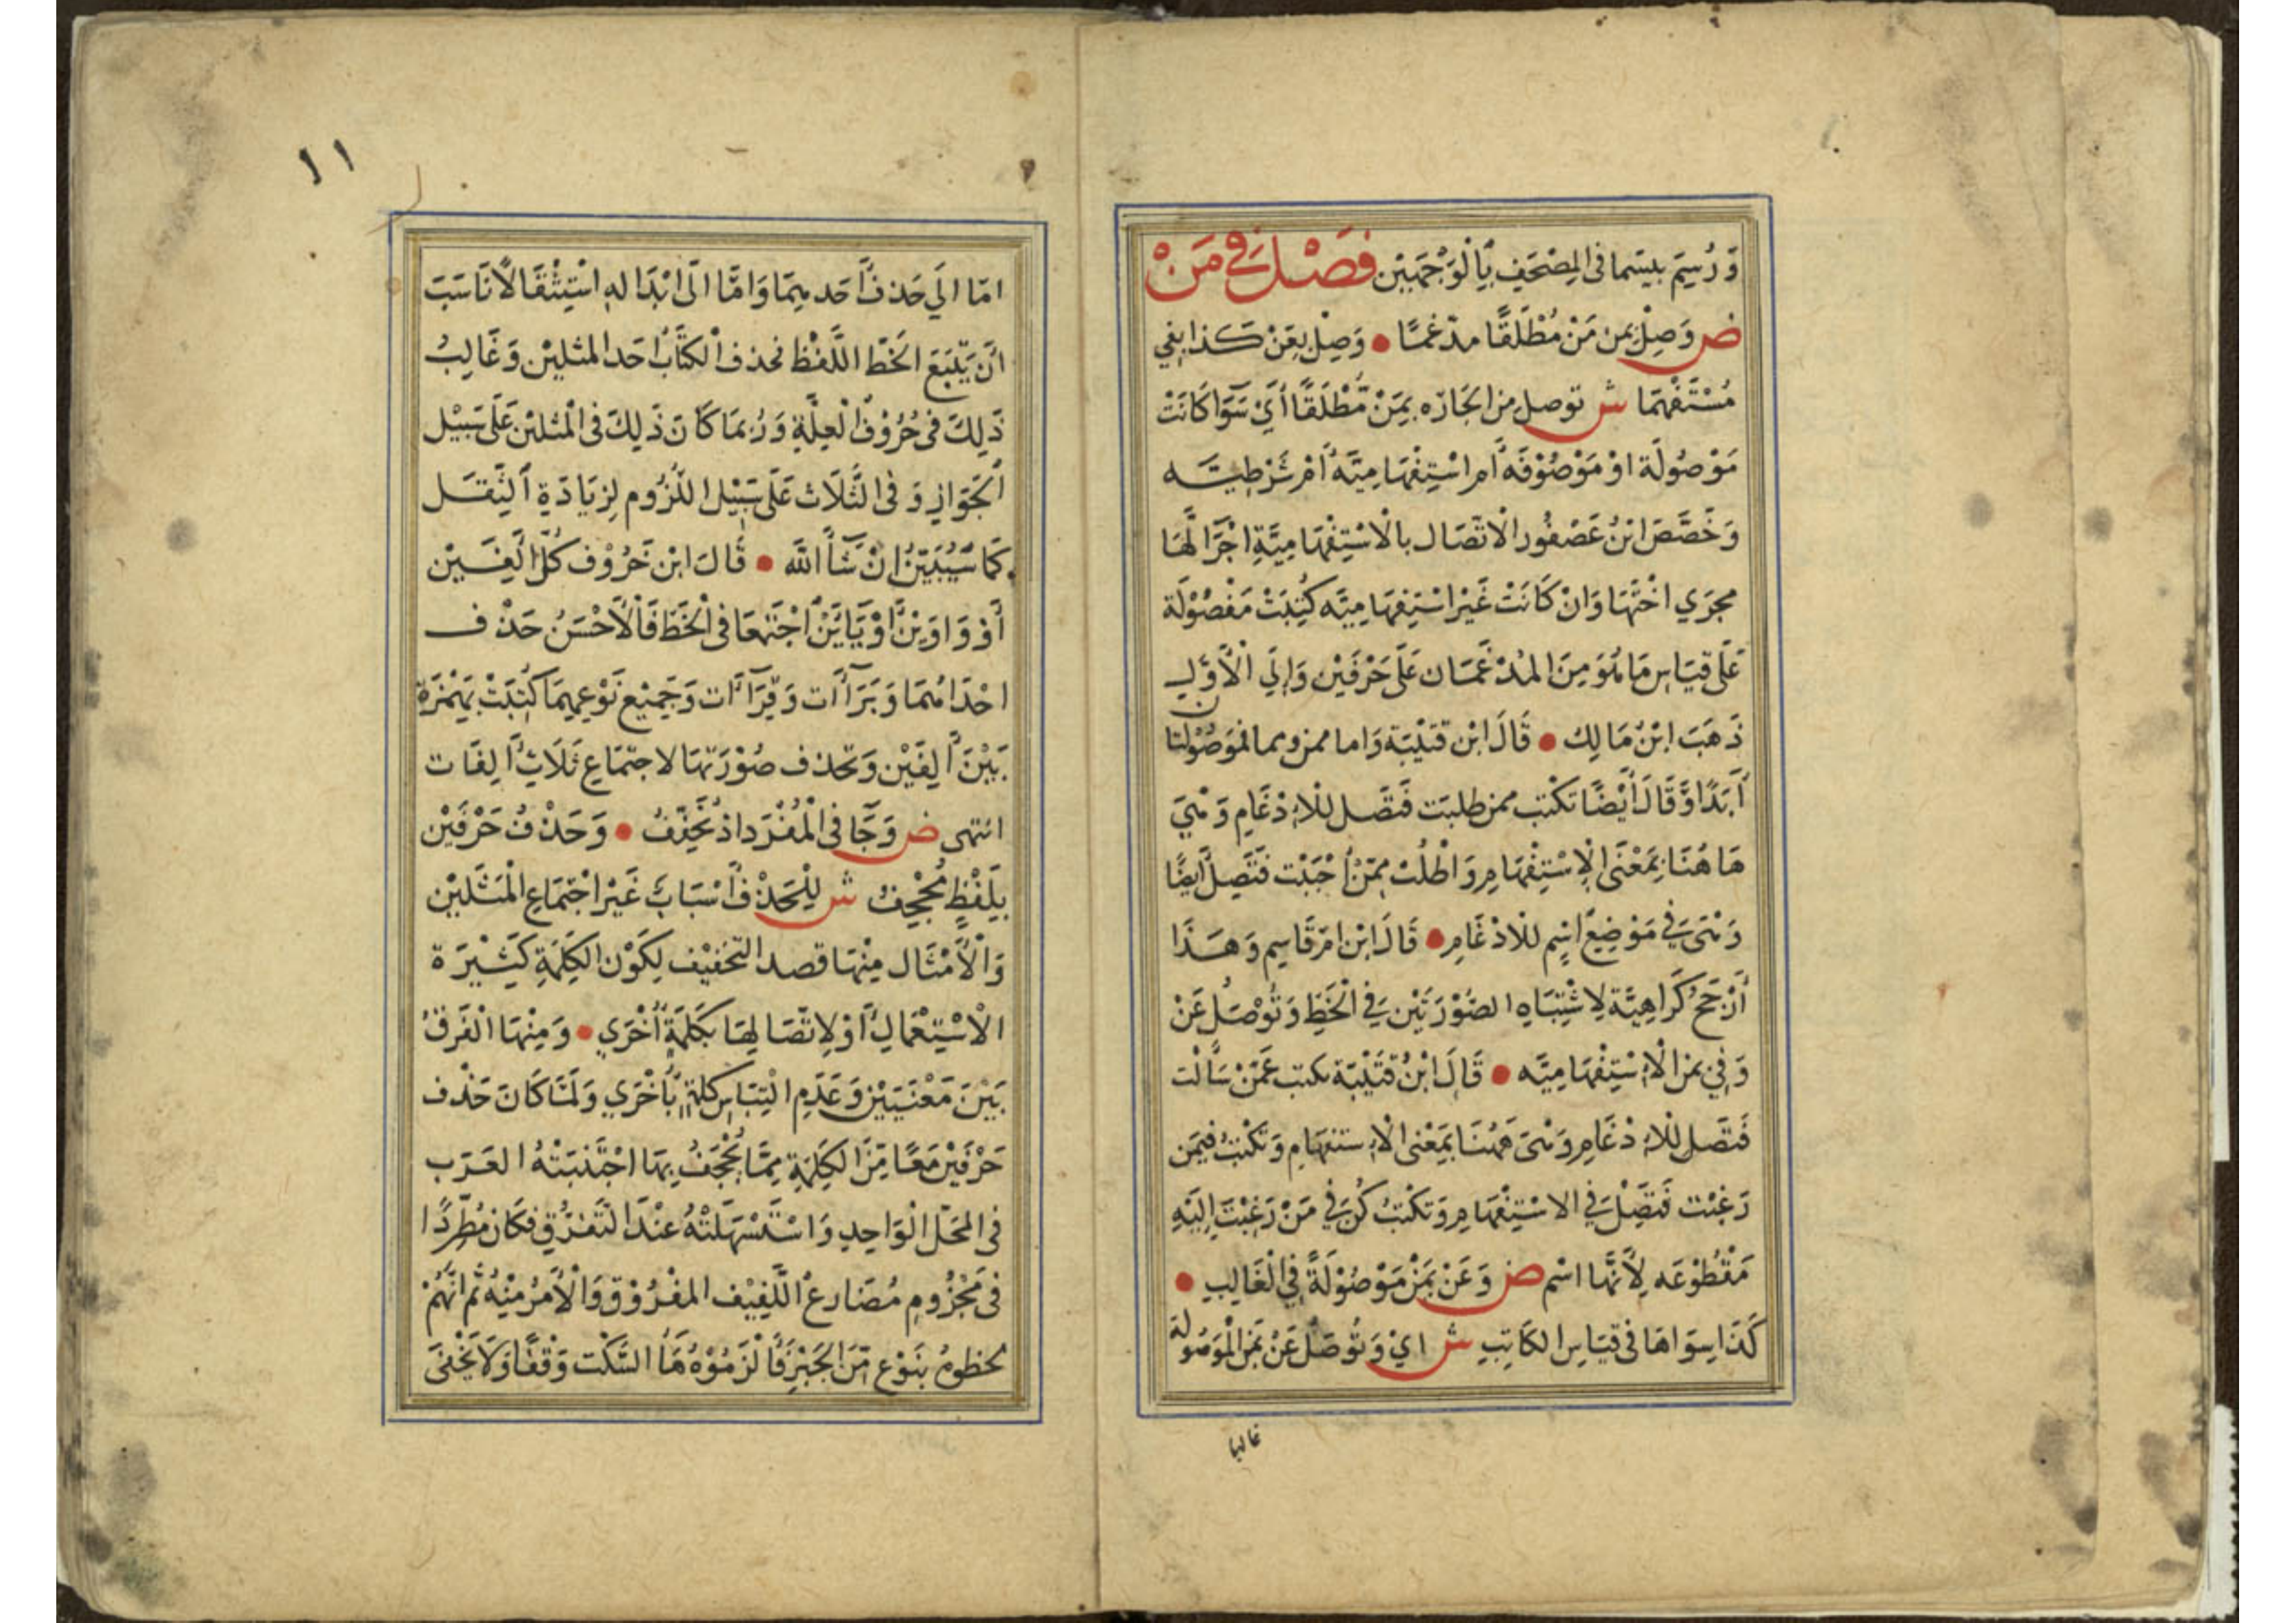 وَرُسِمَ بيسما فى المِصْحَفِ بِالْوَجْهَيْن فَصْل فِي مَنْ
ض وَصِلْ بِمن مَنْ مُطْلَقًا مدْغمًا • وَصِلْ بِعَنْ كَذا بِفي
مُسْتَفْهِمَا ش توصل من الجَارّه بِمَنْ مُّطْلَقًا أَيْ سَوَا كَانَتْ
مَوْصُولَة اوْ مَوْصُوْفَه أَم اسْتِفْهَامِيَّهُ أَمْ شَرْطِيَّه
وَخَصَّصَ ابْنُ عَصْفُور الْاتّصَال بالْاسْتِفْهَامِيَّةِ اجْرَا لَّهَا
مجرَي اخْتِهَا وَانْ كَانَتْ غَيْر اسْتِفهَامِيّه كُتِبَتْ مَفْصُوْلَة
عَلَى قِيَاسِ مَا هُوَ مِنَ المُدْغَمَان عَلَى حَرْفَيْن وَإِلَي الْأَوَّلِ
ذَهَبَ ابْنُ مَالِك • قَالَ ابْن قتَيْبَة وَاما ممن ومما فمَوصُوْلتان
أَبَدًا وَّقَالَ أَيْضًا تكْتب ممن طلبَت فتَصل للْادْغَامِ وَهْيَ
هَا هُنَا بِمَعْنَى الْاسْتِفْهَامِ وَاطْلُبْ مِمَّنْ أحْبَبْت فَتَصِلْ أَيضًا
وَهْىَ فِي مَوْضِعِ اسْمٍ للْادْغَامِ • قَالَ ابْن امّ قَاسِم وَهَذَا
أَرْجَحُ كَرَاهِيَّة لِاشْتِبَاهِ الصُوْرَتَيْن فِي الْخَطِّ وَتُوْصَلُ عَنْ
وَفِي بِمَن الْاسْتِفْهَامِيَّه • قَالَ ابْنُ قُتَيْبَة تكتب عَمَّنْ سَأَلْت
فَتصَل للْادْغَامِ وَهْىَ هَهُنَا بِمَعْنى الْاستفهَامِ وَتَكْتُبُ فِيمَن
رَغِبْت فَتَصِلْ فِي الاسْتِفْهَامِ وَتكْتُبُ كُنْ فِي مَنْ رَغِبْتَ اِلَيْهِ
مَقْطُوْعَه لِأَنَّهَا اسْم ض وَعَنْ بِمَنْ مَوْصُوْلَةً فِي الْغَالِبِ •
كَذَا سِوَاهَا فى قِيَاسِ الكَاتِبِ ش ايْ وَتُوصَلُ عَنْ بمَن الْمَوْصُولَة
غالبا
١١
امّا الَي حَذف أَحَدهِمَا وَامَّا الَى ابْدَاله اسْتِثْقَالًا نَاسَبَ
انَّ يَتّبَعَ الخَطّ اللَّفْظ فحذف الْكتَّابُ احَد المثلين وَغَالِبُ
ذَلِكَ فى حُرُوْفِ الْعِلَّةِ وَرُبمَا كَانَ ذَلِكَ فى الْمثلَيْن عَلَى سَبِيْل
الْجَوَازِ وَفى الثَّلَاث عَلَى سَبِيْل اللّزُوم لِزِيَادَةِ الثِّقَل
كَمَا سَيُبَيَّنُ انْ شَأَ اللّه • قَالَ ابْن خَرُوْف كُلّ ألِفَيْن
أَوْ وَاوَيْنِ أوْ يَايَيْن اجْتَمعَا فى الْخَطّ فَالْأَحْسَنُ حَذْف
احْدَاهُمَا وَبَرَآآت وَقِرَآآت وَجَمِيْع نَوْعِهِمَا كُتِبَتْ بِهَمْزَة
بَيْنَ ألِفَيْن وَتحْذف صُوْرَتهَا لاجتِمَاعِ ثَلَاثِ أَلِفَات
انتهى ض وَجَا فى الْمُفْرَد اذ تُخَفّفُ • وَحَذْفُ حَرْفَيْن
بِلَفْظٍ مُجْحِفُ ش لِلْحَذْف أَسْبَابٌ غَيْر اجْتِمَاعِ الْمَثَلَيْن
وَالْأَمْثَال مِنْهَا قصد التخفيْف لِكَوْن الكِلمَةِ كَثِيْرَة
الْاسْتِعْمَالِ أَوْ لاتّصَالِهَا بكَلِمَةٍ أُخْرَي • وَمِنْهَا الْفَرقُ
بَيْنَ مَعْنَيَيْن وَعَدَمِ الْتِبَاسِ كلمَةٍ بِأُخْرَي وَلَمَّا كَانَ حَذْف
حَرْفَيْن مَعًا مّنَ الكَلِمَةِ مِمَّا يُجْحَفُ بِهَا اجْتَنبَتْهُ العَرَب
فى المَحَلّ الْوَاحِدِ وَاسْتَسْهَلَتْهُ عنْدَ التَّفَرّقِ فكَان مُطّرِدًا
فى مَجْزُومِ مُضَارعُ اللَّفِيْف المفْرُوْق وَالْأَمْرُ مِنْهُ ثُم انَّهُمْ
بِنَوْعِ مّنَ الجَبْرِ فَأَلْزَمُوْهُ هَأ السَّكْت وَقْفًا وَلَا يَخْفَى